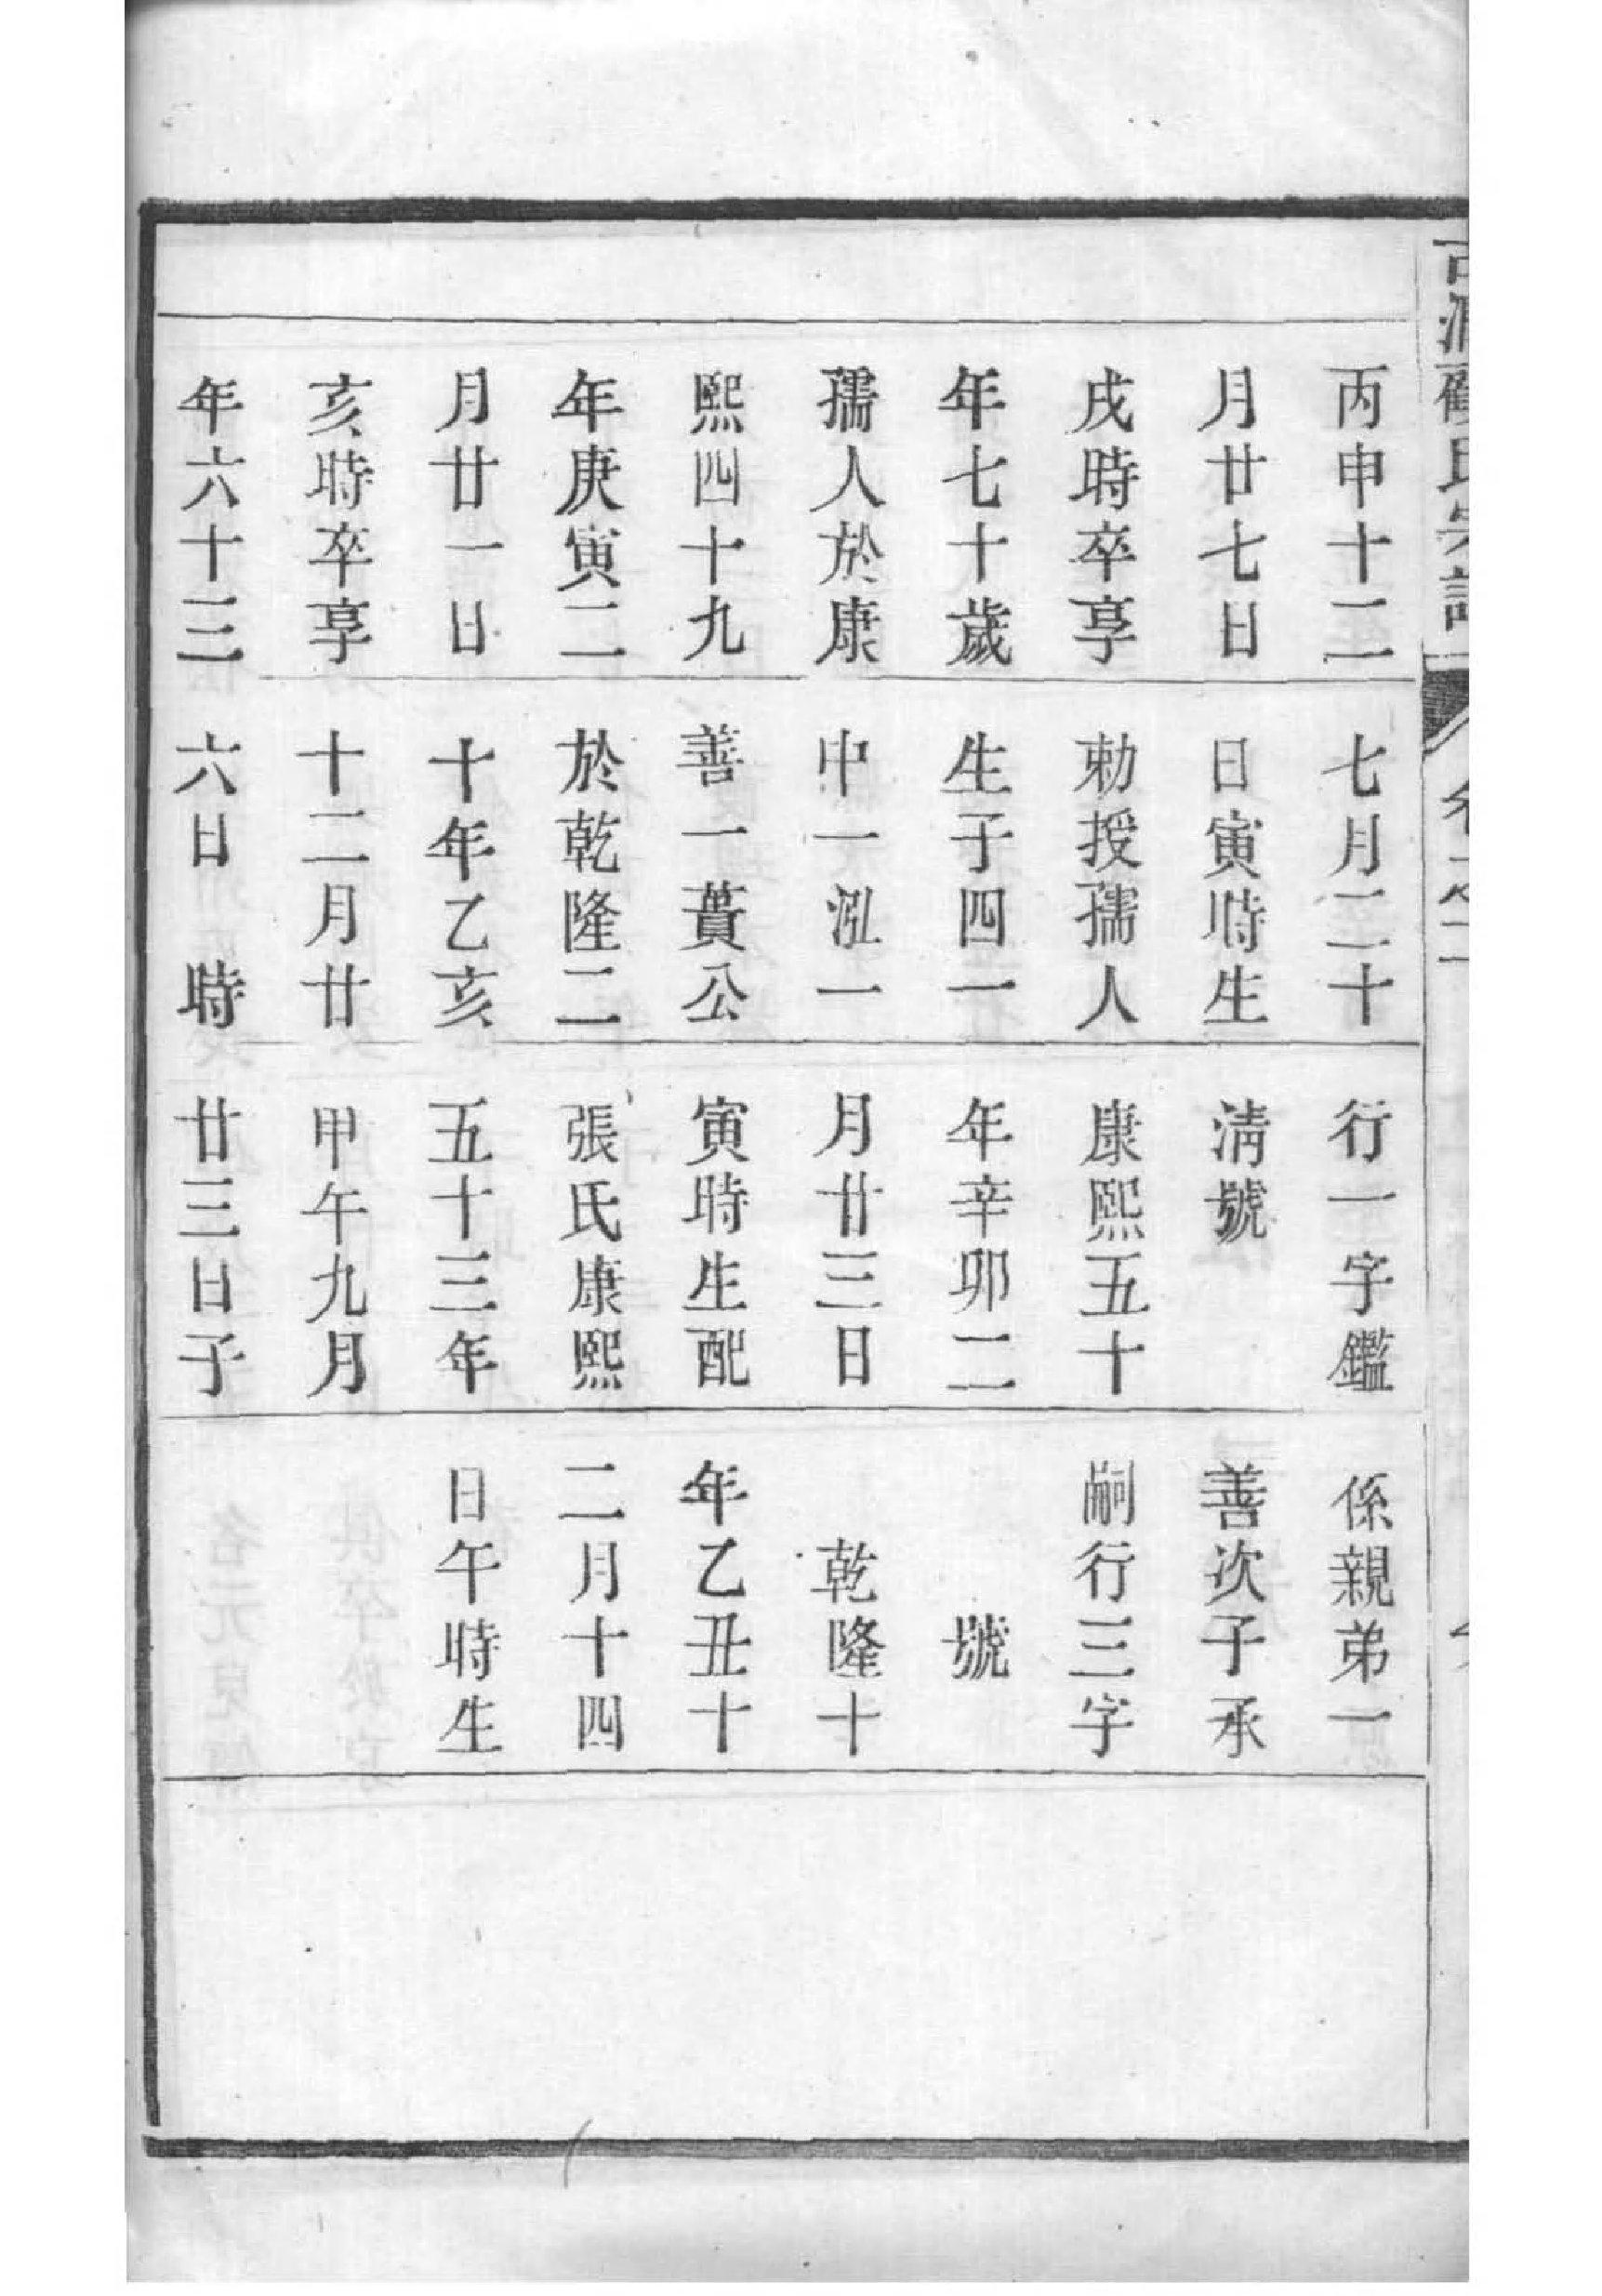 氏宗譜
卷之二
丙申十二
月廿七日
戌時卒享
年七十歲
孺人於康
熙四十九
年庚寅二
月廿一日
亥時卒享
年六十三
七月二十
日寅時生
勅授孺人
生子四一
中一泓一
善一蕢公
於乾隆二
十年乙亥
十二月廿
六日 時
行一字鑑
淸號
康熙五十
年辛卯二
月廿三日
寅時生配
張氏康熙
五十三年
甲午九月
廿三日子
係親弟一
善次子承
嗣行三字
號
乾隆十
年乙丑十
二月十四
日午時生